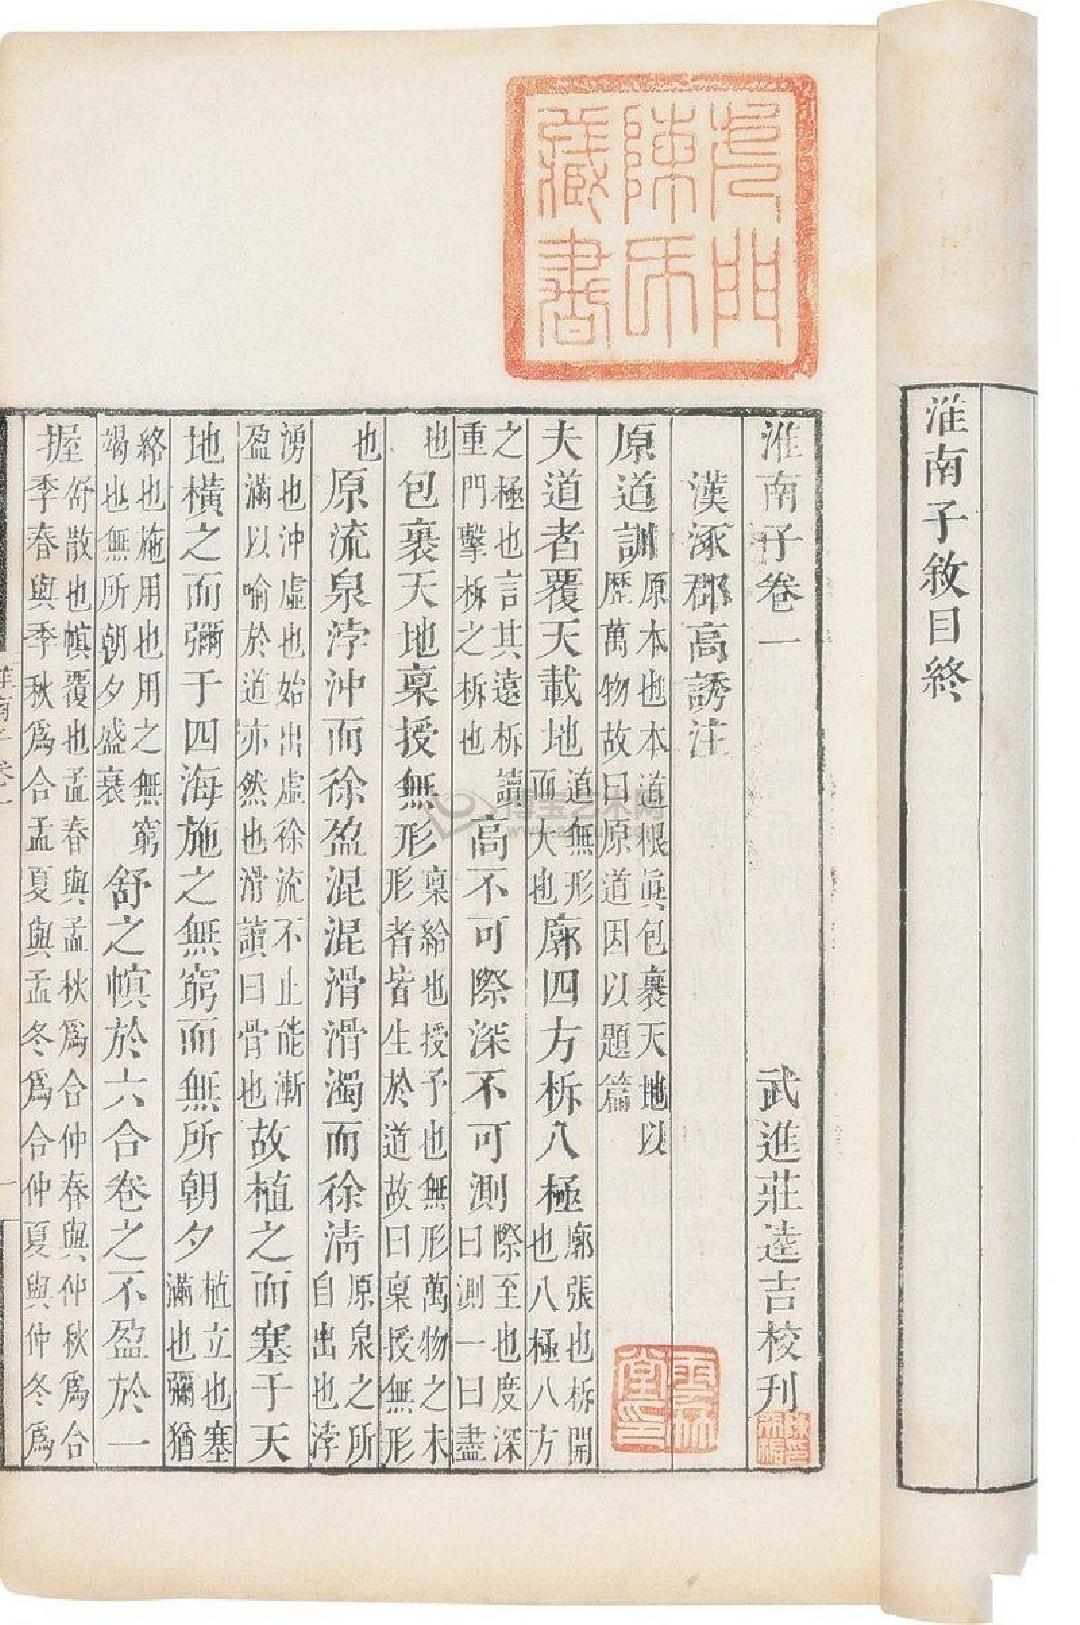 淮南子敘目終
門
陳氏
藏書
淮南子卷一 武進莊逵吉校刊
漢涿郡高誘注
原道訓 原本也本道根眞包裹天地以
歷萬物故曰原道因以題篇
夫道者覆天載地 道無形
而大也 廓四方柝八極 廓張也柝開
也八極八方
之極也言其遠柝讀
重門擊柝之柝也 高不可際深不可測 際至也度深
曰測一曰盡
也 包裹天地稟授無形 稟給也授予也無形萬物之未
形者皆生於道故曰稟授無形
也 原流泉浡沖而徐盈混混滑滑濁而徐清 原泉之所
自出也浡
湧也沖虛也始出虛徐流不止能漸
盈滿以喻於道亦然也滑讀曰骨也 故植之而塞于天
地橫之而彌于四海施之無窮而無所朝夕 植立也塞
滿也彌猶
絡也施用也用之無窮
竭也無所朝夕盛衰 舒之幎於六合卷之不盈於一
握 舒散也幎覆也孟春與孟秋爲合仲春與仲秋爲合
季春與季秋爲合孟夏與孟冬爲合仲夏與仲冬爲
雲林
堂印